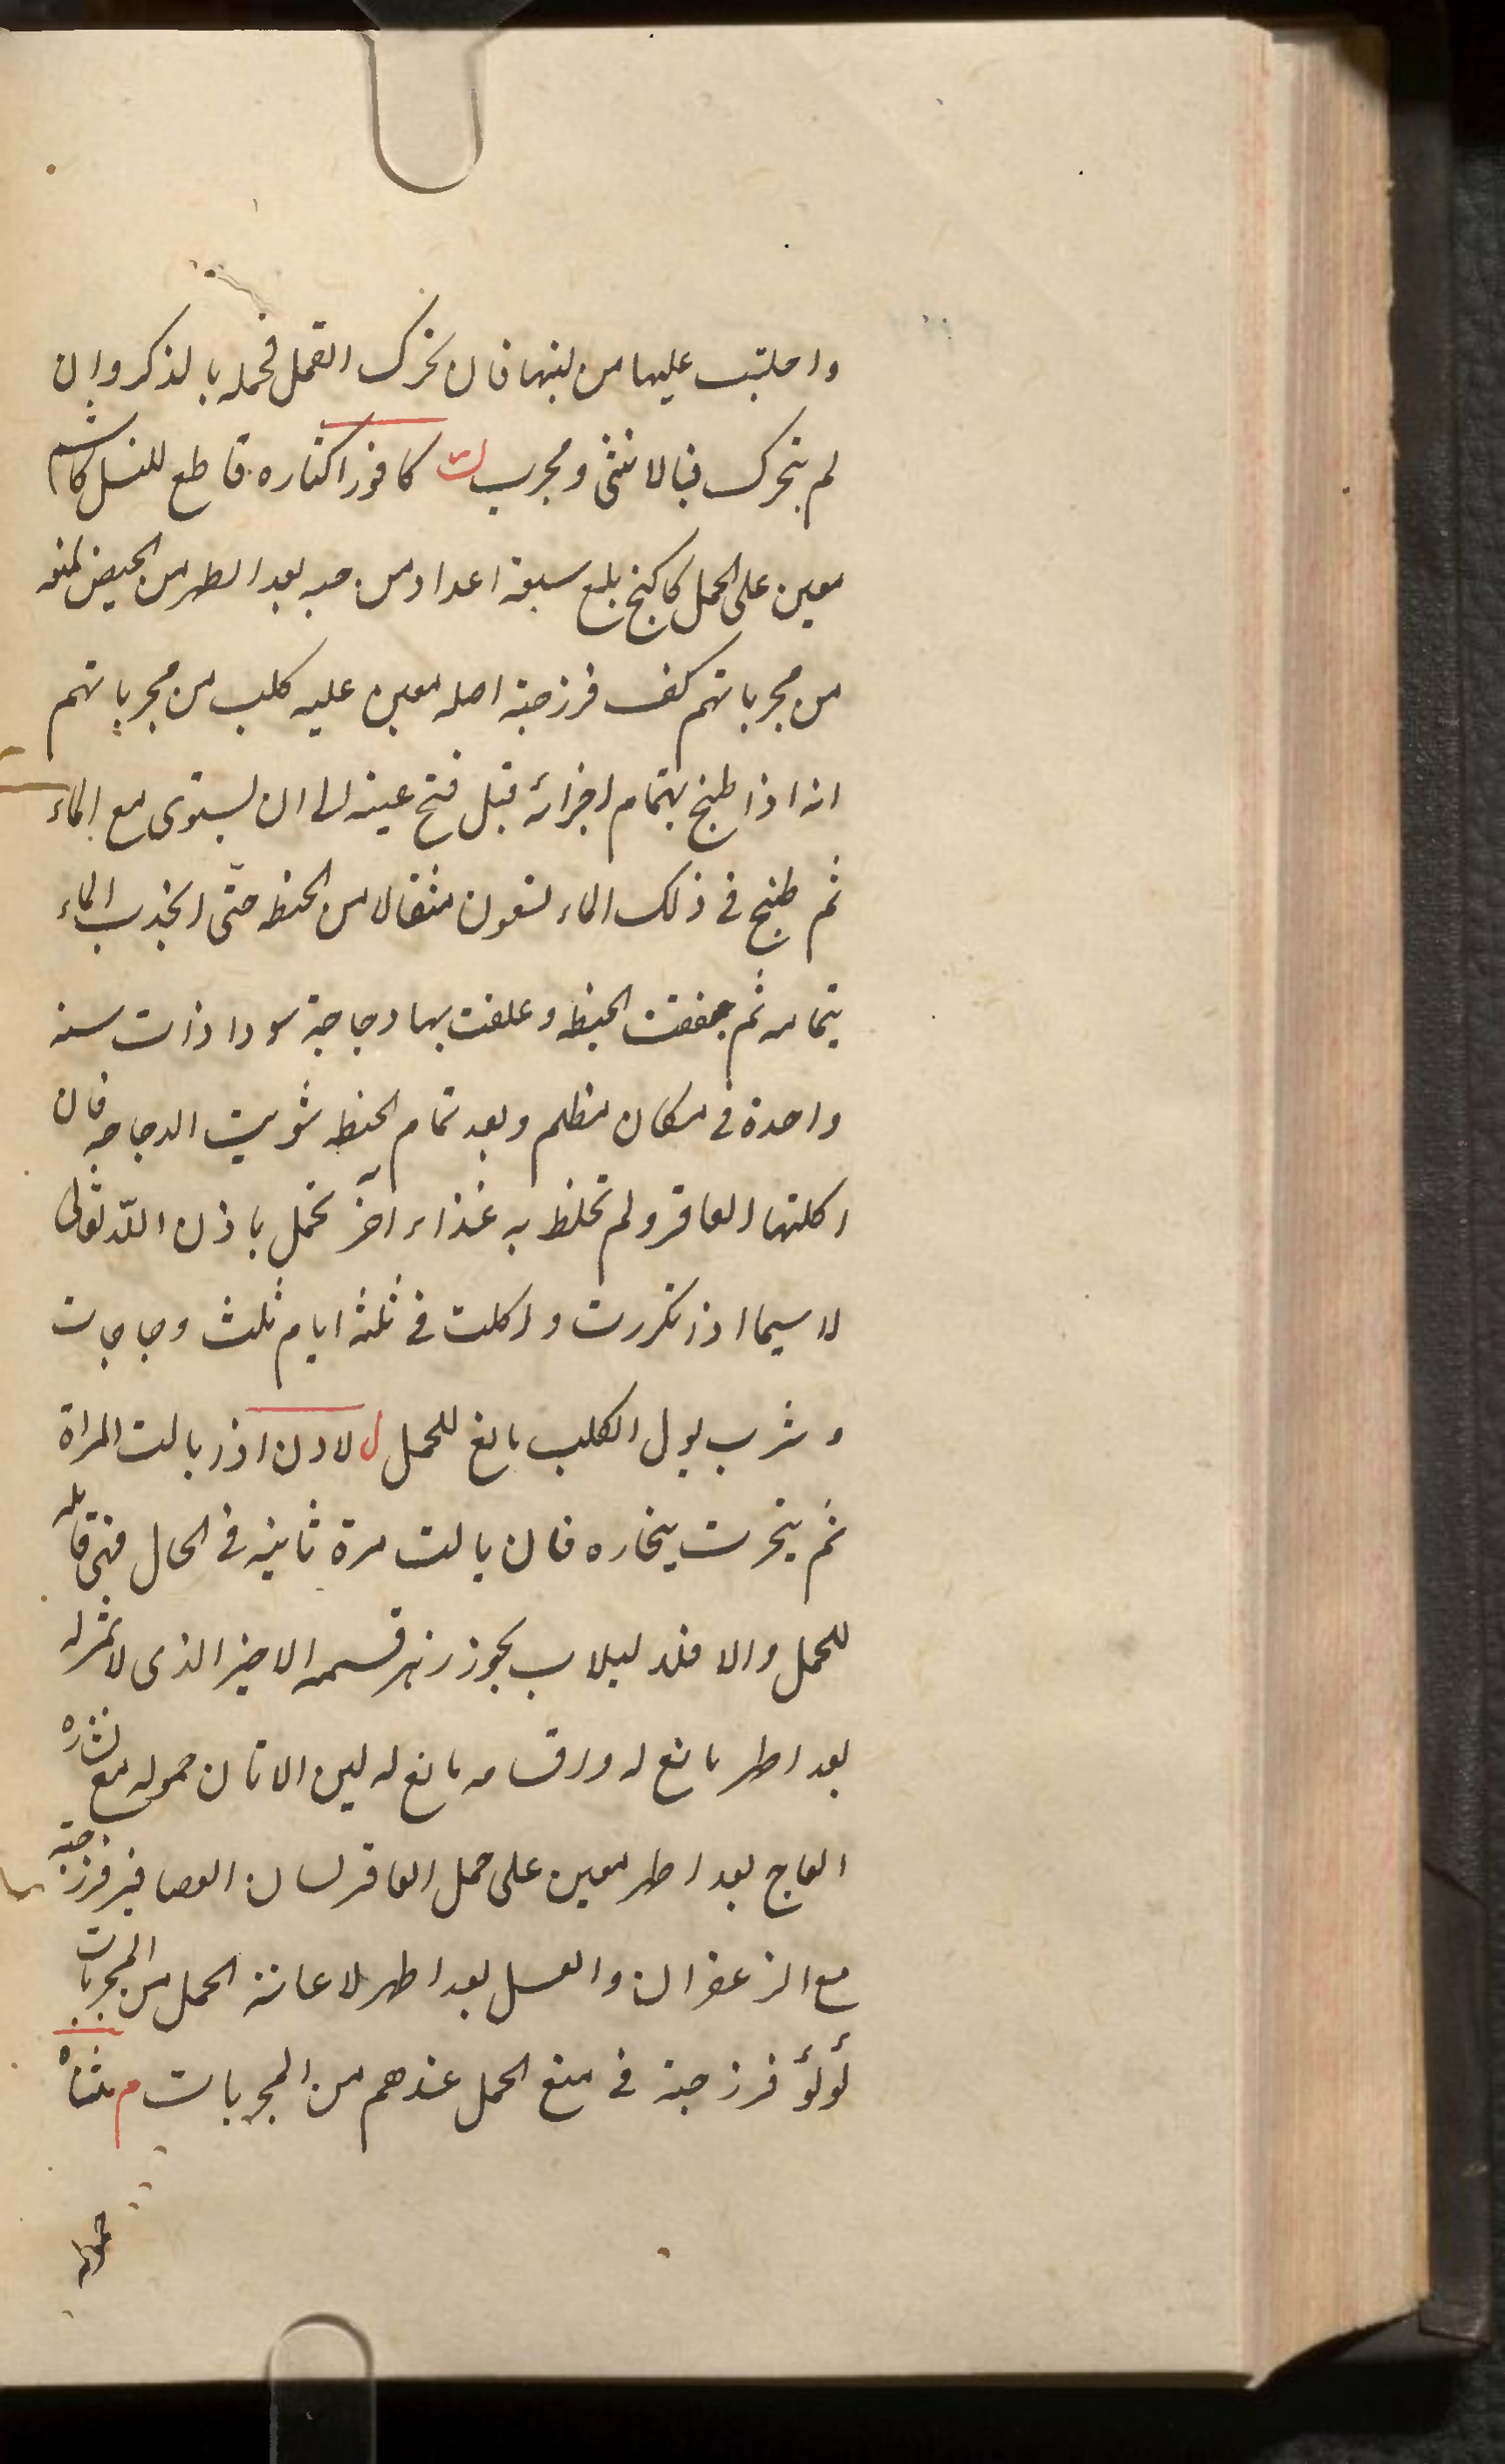 واحلبت عليها من لبنها فان تحرك القمل فحمله بالذكر وان
لم يتحرك فبالانثى ومجرب ك كافور اكثاره قاطع للنسل كاشم
معين على الحمل كاكنج بلع سبعة اعداد من حبه بعد الطهر من الحيض لمنعه
من مجرباتهم كف فرزجة اصله معين عليه كلب من مجرباتهم
انه اذا طبخ بتمام اجزائه قبل فتح عينه الى ان يستوى مع الماء
ثم طبخ فى ذلك الماء تسعون مثقالا من الحنطه حتّى انجذب الماء
بتمامه ثم جففت الحنطه وعلفت بها دجاجة سودا ذات سنه
واحدة فى مكان مظلم وبعد تمام الحنطه شويت الدجاجه فان
اكلتها العاقر ولم تخلط به غذاء آخر تحمل باذن اللّه تعالى
لا سيما اذا تكررت واكلت فى ثلثه ايام ثلث دجاجات
وشرب بول الكلب مانع للحمل ل لادن اذا بالت المراة
ثم بخرت ببخاره فان بالت مرة ثانيه فى الحال فهى قابله
للحمل والا فلا لبلاب بجوز زهر قسمه الاخير الذى لا ثمر له
بعد اطهر مانع له واقسامه مانع له لبن الاتان حموله مع نشاره
العاج بعد اطهر معين على حمل العاقر لسان العصافير فرزجة
مع الزعفران والعسل بعد اطهر لاعانة الحمل من المجربات
لؤلؤ فرزجة فى منع الحمل عندهم من المجربات م مثانه
حموله